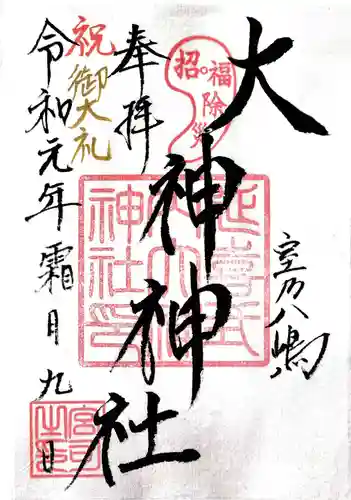 室乃八嶋
大神神社
奉拝
招福除災
祝
御大礼
令和元年霜月九日
延喜式
神社
宮司之印